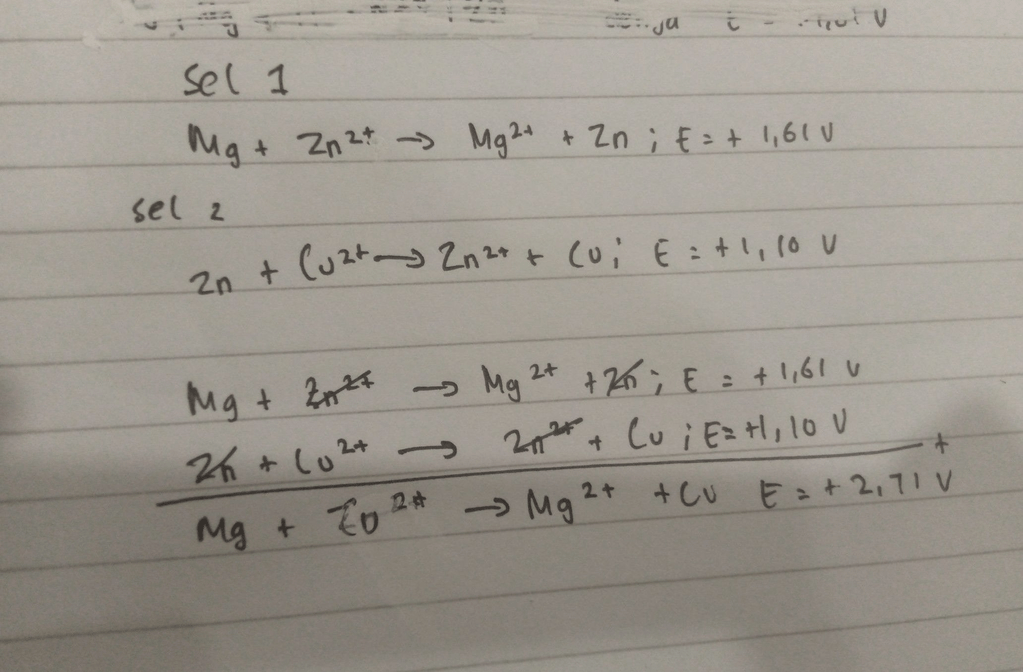 sel 1
Mg + Zn²⁺ → Mg²⁺ + Zn ; E = + 1,61 V
sel 2
Zn + Cu²⁺ → Zn²⁺ + Cu ; E = +1,10 V
Mg + Zn²⁺ → Mg²⁺ + Zn ; E = +1,61 V
Zn + Cu²⁺ → Zn²⁺ + Cu ; E = +1,10 V +
Mg + Cu²⁺ → Mg²⁺ + Cu E = + 2,71 V